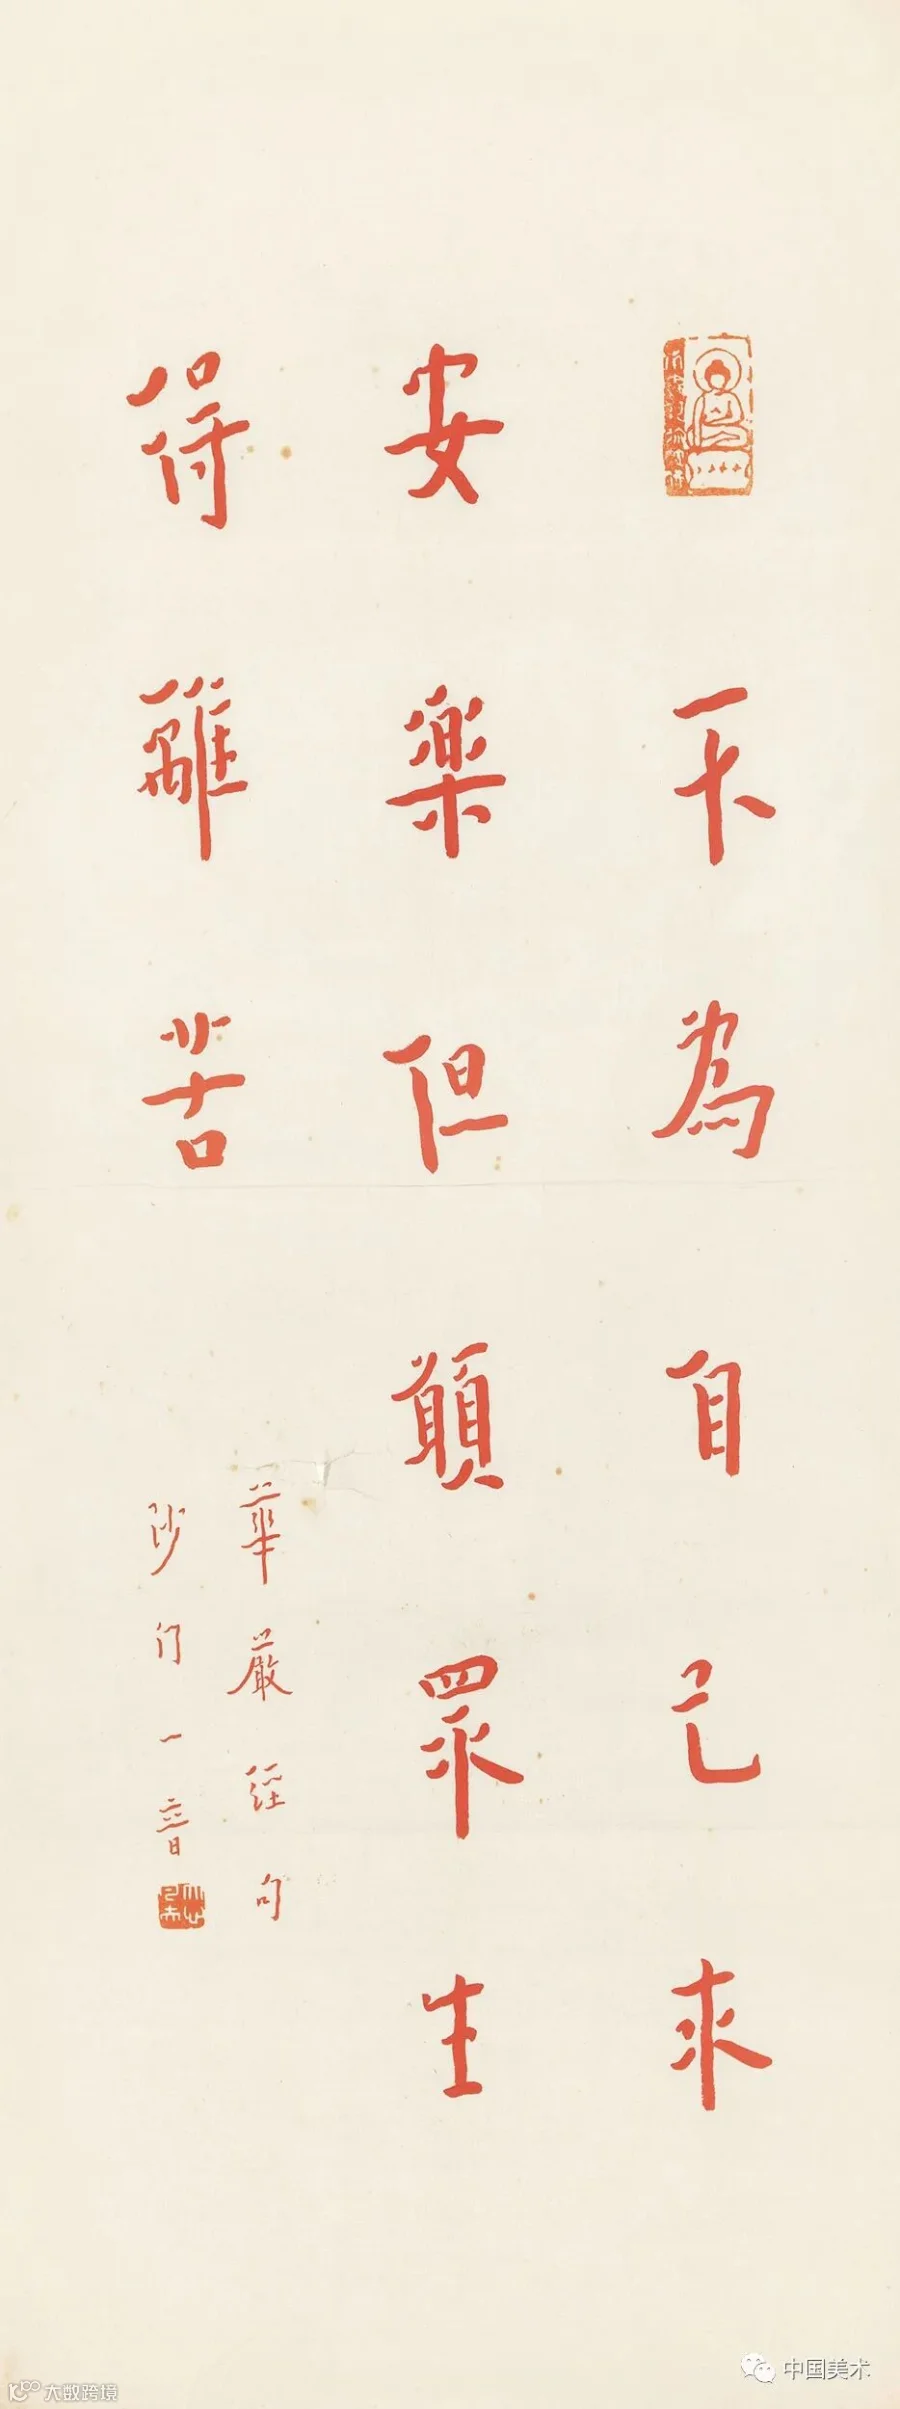 不為自己求
安樂但願眾生
得離苦
華嚴經句
沙门一音
中国美术
大数跨境